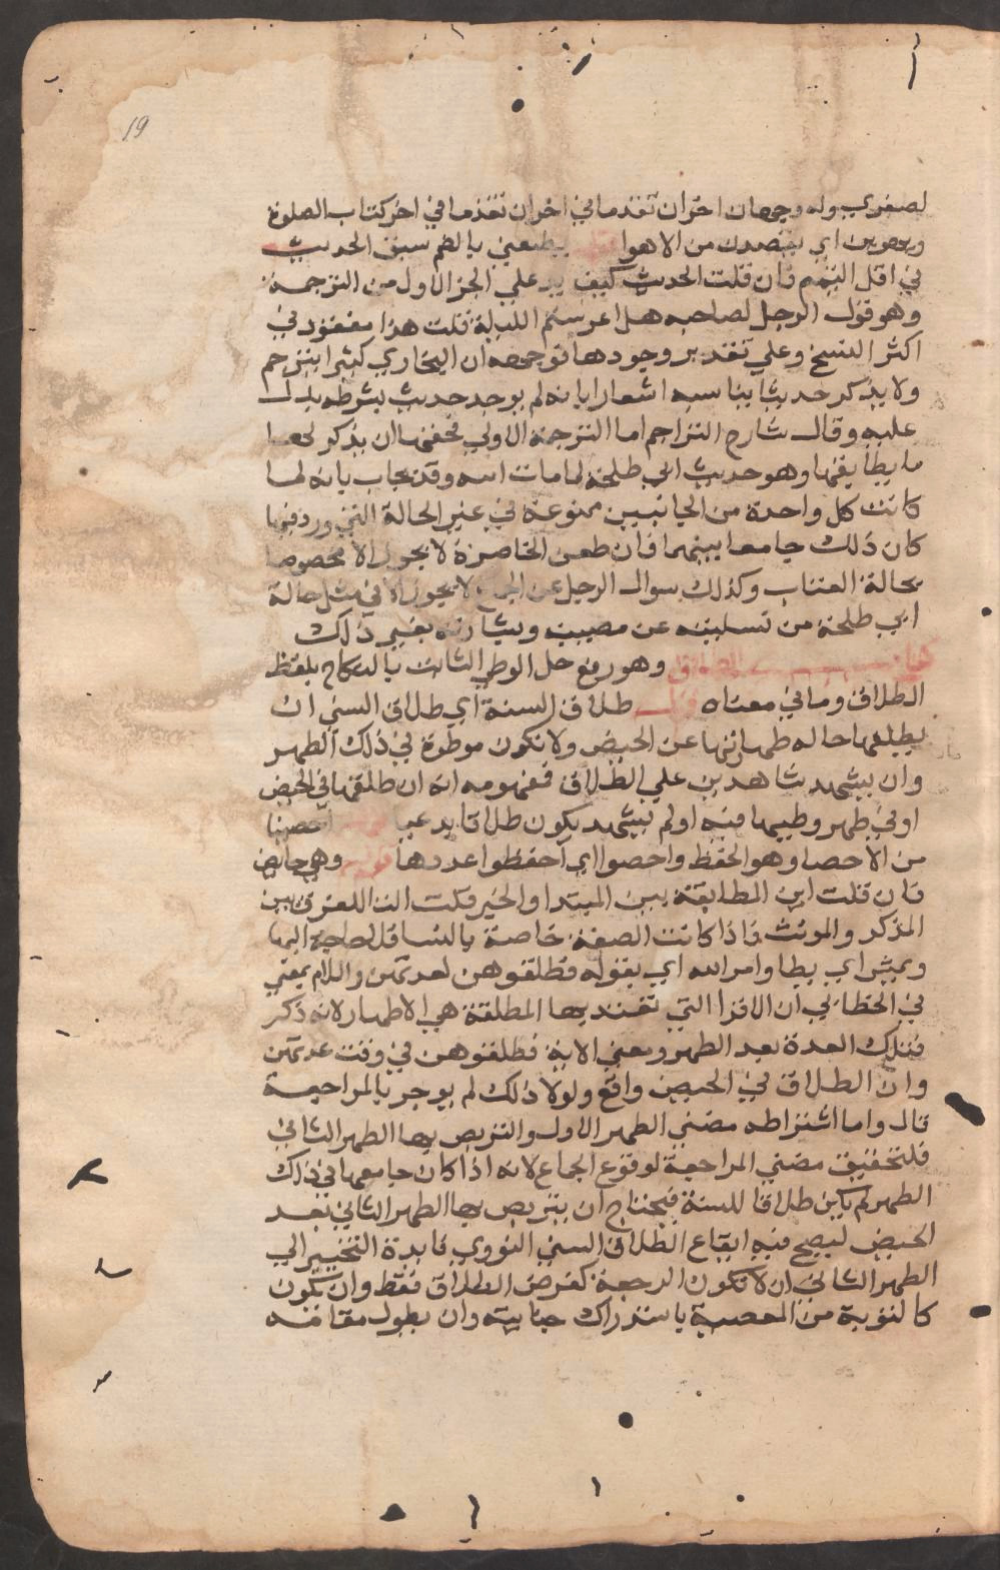 19
لصغري وله وجهان اخران تقدما في اخران تقدما في اخر كتاب الصلوة
اي يقصدك من الاهوا يطعنني بالضم سبق الحديث
في اقل التيمم فان قلت الحديث كيف يدل علي الجز الاول من الترجمة
وهو قول الرجل لصاحبه هل اعرستم الليلة قلت هذا مفقود في
اكثر النسخ وعلي تقدير وجودها توجهه ان البخاري كثيرا يترجم
ولا يذكر حديثا يناسبه اشعارا بانه لم يوجد حديث بشرطه يدل
عليه وقال شارح التراجم اما الترجمة الاولي فحقها ان يذكر لها
ما يطابقها وهو حديث ابي طلحة لما مات ابنه وقد يجاب بانه لما
كانت كل واحدة من الحالتين ممنوعة في غير الحالة التي ورد فيها
كان ذلك جامعا بينهما فان طعن الخاصرة لا يجوز الا مخصوصا
بحالة العتاب وكذلك سوال الرجل عن الجماع لا يجوز الا في مثل حالة
ابي طلحة من تسليته عن مصيبته وبشارته بغير ذلك
كتاب الطلاق وهو رفع حل الوطي الثابت بالنكاح بلفظ
الطلاق وما في معناه قوله طلاق السنة اي طلاق السني ان
يطلقها حاله طهارتها عن الحيض ولا تكون موطوة في ذلك الطهر
وان يشهد شاهدين علي الطلاق فمفهومه انه ان طلقها في الحيض
او في طهر وطيها فيه او لم يشهد يكون طلاقا بدعيا احصينا
من الاحصا وهو الحفظ واحصوا اي احفظوا عددها قوله وهي حايض
فان قلت اين المطابقة بين المبتدا والخبر قلت التا للفرق بين
المذكر والمونث فاذا كانت الصفة خاصة بالنسا فلا حاجة اليها
ويمس اي يطا وامر الله اي بقوله فطلقوهن لعدتهن واللام بمعني
في الخطابي ان الاقرا التي تعتد بها المطلقة هي الاطهار لانه ذكر
فتلك العدة بعد الطهر ومعني الاية فطلقوهن في وقت عدتهن
وان الطلاق في الحيض واقع ولولا ذلك لم يومر بالمراجعة
قال واما اشتراطه مضي الطهر الاول والتربص بها الطهر الثاني
فلتحقيق مضي المراجعة لوقوع الجماع لانه اذا كان جامعها في ذلك
الطهر لم يكن طلاقا للسنة فيحتاج ان يتربص بها الطهر الثاني بعد
الحيض ليصح فيه ايقاع الطلاق السني النووي فايدة التخيير الي
الطهر الثاني ان لا تكون الرجعة لغرض الطلاق فقط وان تكون
كالتوبة من المعصية باستدراك جنايته وان يطول مقامه